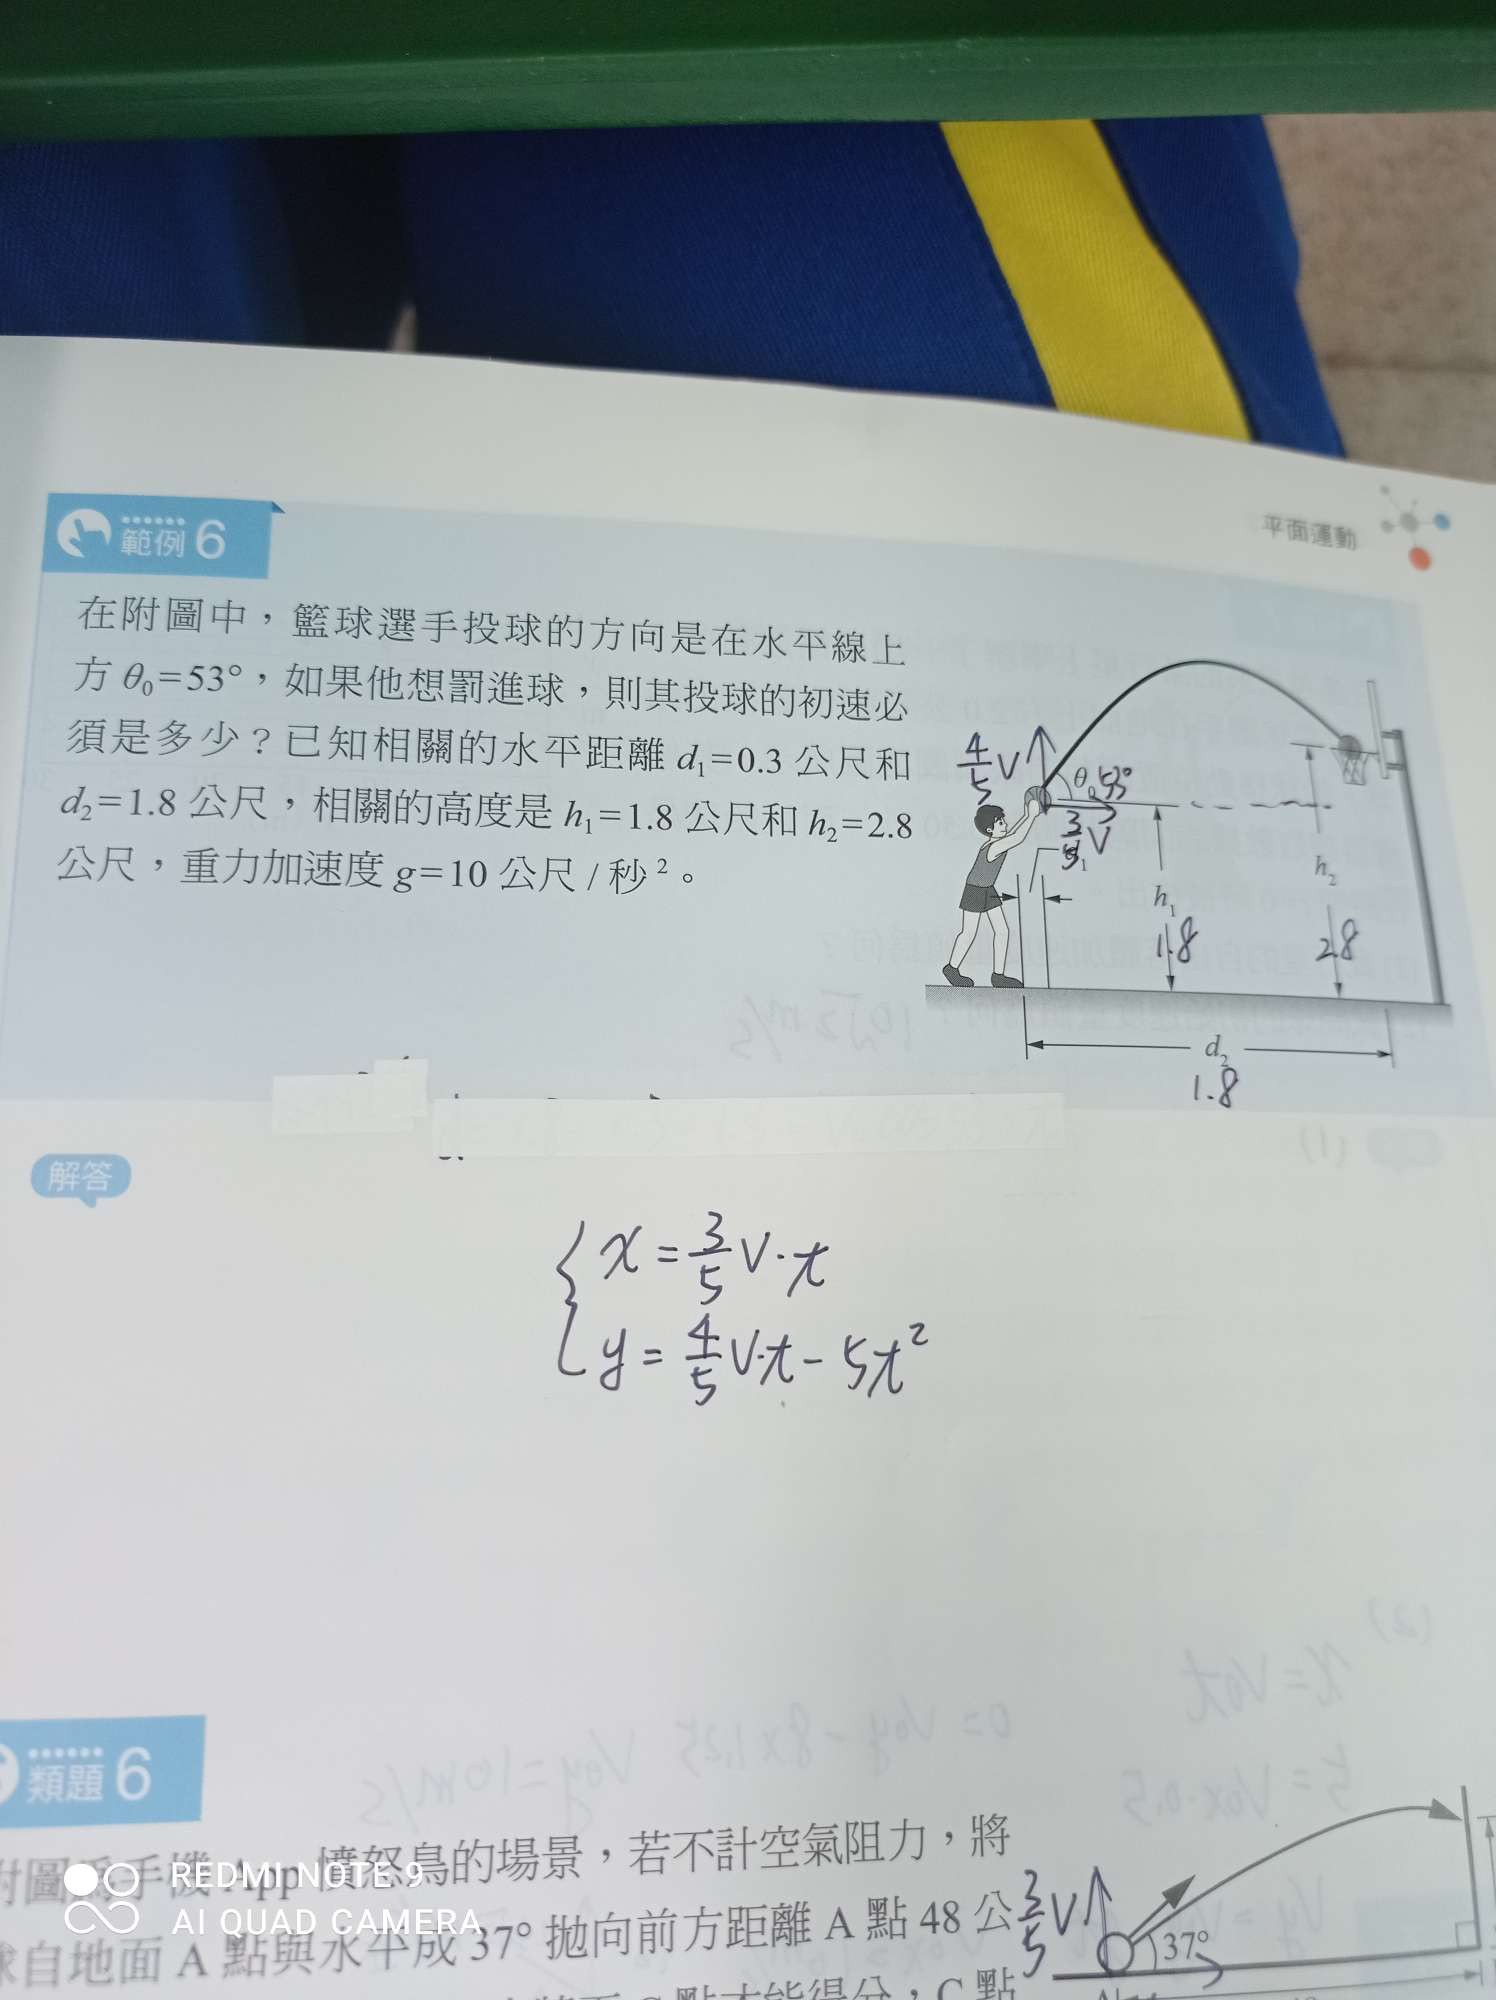 平面運動
範例6
在附圖中，籃球選手投球的方向是在水平線上
方 θ₀=53°，如果他想罰進球，則其投球的初速必
須是多少？已知相關的水平距離 d₁=0.3 公尺和
d₂=1.8 公尺，相關的高度是 h₁=1.8 公尺和 h₂=2.8
公尺，重力加速度 g=10 公尺 / 秒²。
4/5 V
θ₀ 53°
3/5 V
d₁
h₁
1.8
h₂
2.8
d₂
1.8
解答
x = 3/5 V·t
y = 4/5 V·t - 5t²
類題6
附圖為手機 App 憤怒鳥的場景，若不計空氣阻力，將
球自地面 A 點與水平成 37° 拋向前方距離 A 點 48 公
點才能得分，C 點
3/5 V
37°
A
REDMI NOTE 9
AI QUAD CAMERA